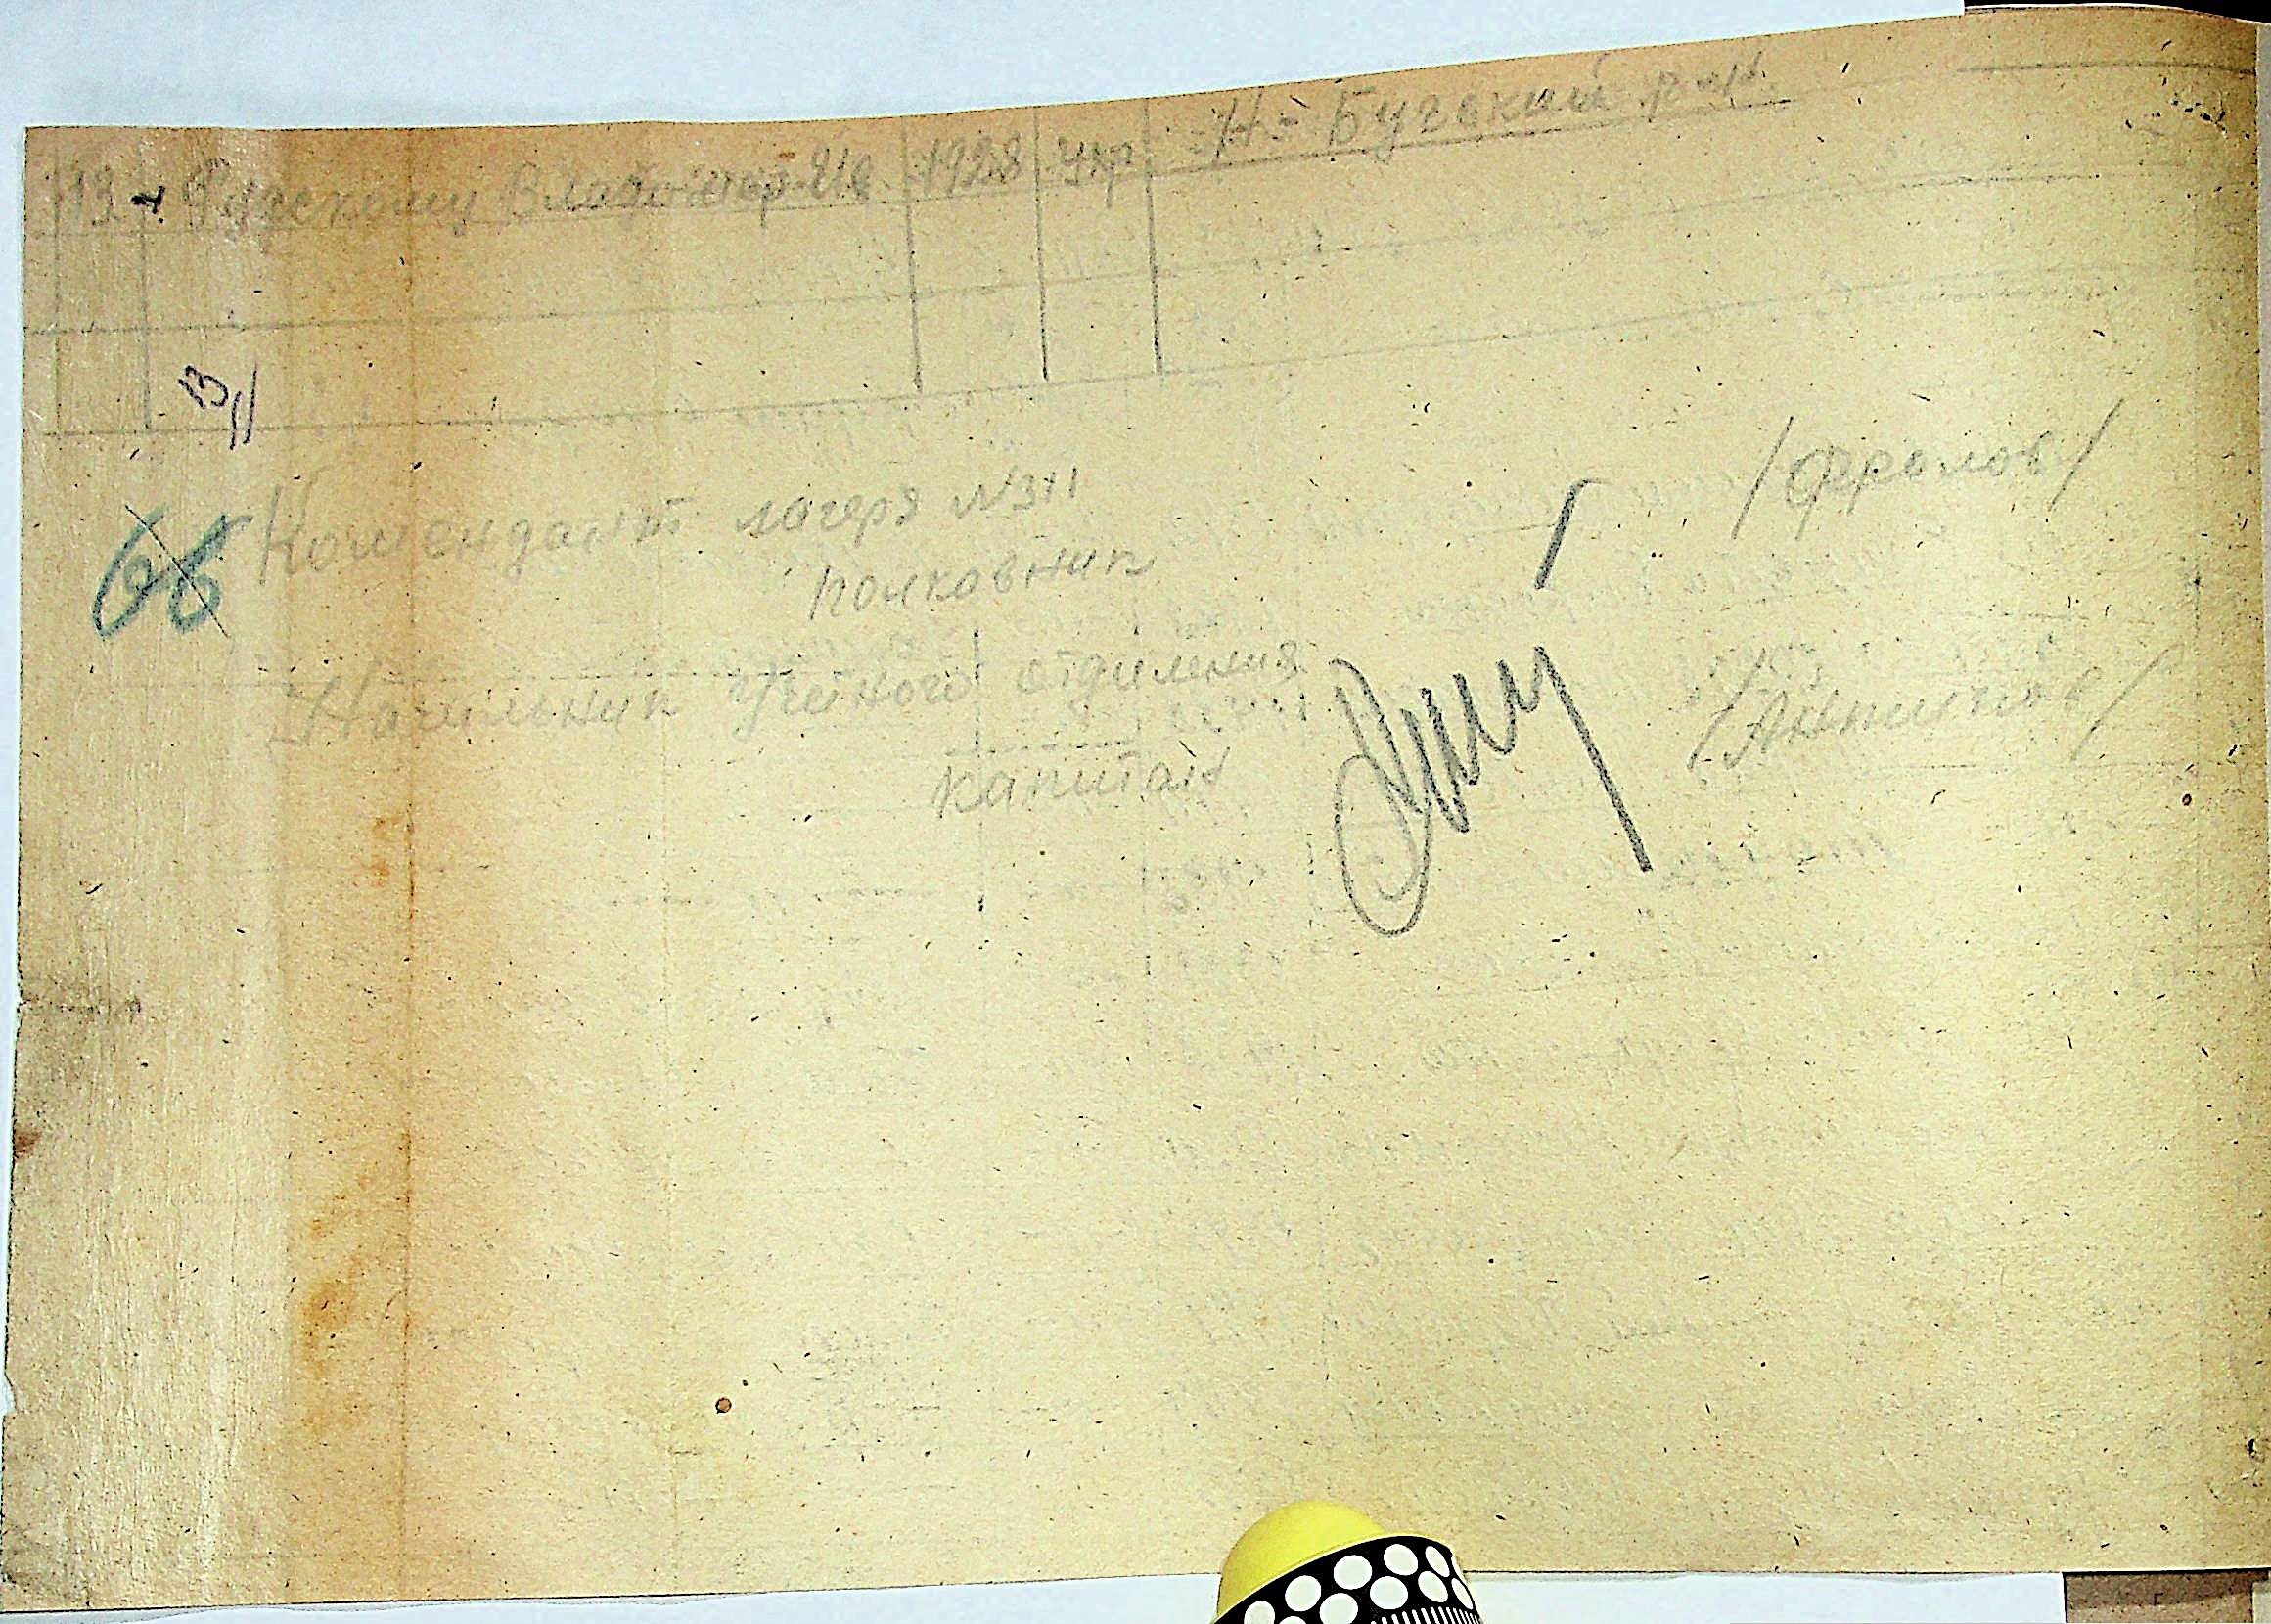 13 Владимир Ив. 1928 Укр. -//- Бугский р-н
13/11
66
Комендант лагеря №311
полковник /Фролов/
Начальник учетного отделения
капитан /Аникичев/